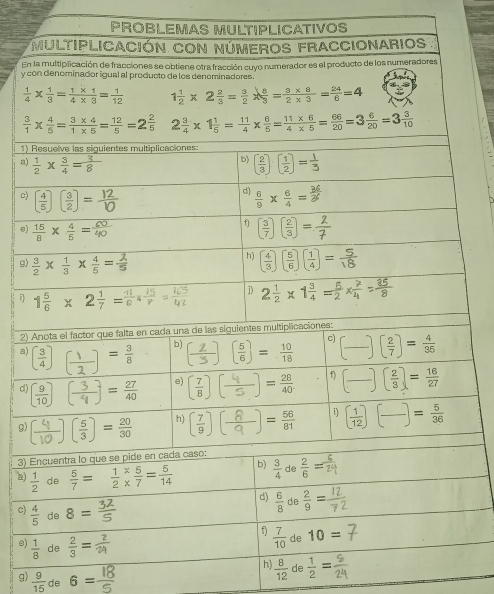 PROBLEMAS MULTIPLICATIVOS
MULTIPLICACIÓN CON NÚMEROS FRACCIONARIOS
En la multiplicación de fracciones se obtiene otra fracción cuyo numerador es el producto de los numeradores
y con denominador igual al producto de los denominadores.
1/4 x 1/3 = 1 x 1 / 4 x 3 = 1/12    1 1/2 x 2 2/3 = 3/2 x 8/3 = 3 x 8 / 2 x 3 = 24/6 = 4
3/1 x 4/5 = 3 x 4 / 1 x 5 = 12/5 = 2 2/5    2 3/4 x 1 1/5 = 11/4 x 6/5 = 11 x 6 / 4 x 5 = 66/20 = 3 6/20 = 3 3/10
1) Resuelve las siguientes multiplicaciones:
a) 1/2 x 3/4 = 3/8    b) (2/3) (1/2) = 1/3
c) (4/5) (3/2) = 12/10    d) 6/9 x 6/4 = 36/36
e) 15/8 x 4/5 = 60/40    f) (3/7) (2/3) = 2/7
g) 3/2 x 1/3 x 4/5 = 2/5    h) (4/3) (5/6) (1/4) = 5/18
i) 1 5/6 x 2 1/7 = 11/6 x 15/7 = 165/42    j) 2 1/2 x 1 3/4 = 5/2 x 7/4 = 35/8
2) Anota el factor que falta en cada una de las siguientes multiplicaciones:
a) (3/4) (1/2) = 3/8    b) (2/3) (5/6) = 10/18    c) (__) (2/7) = 4/35
d) (9/10) (3/4) = 27/40    e) (7/8) (4/5) = 28/40    f) (__) (2/3) = 16/27
g) (4/10) (5/3) = 20/30    h) (7/9) (8/9) = 56/81    i) (1/12) (__) = 5/36
3) Encuentra lo que se pide en cada caso:
a) 1/2 de 5/7 = 1 x 5 / 2 x 7 = 5/14    b) 3/4 de 2/6 = 6/24
c) 4/5 de 8 = 32/5    d) 6/8 de 2/9 = 12/72
e) 1/8 de 2/3 = 2/24    f) 7/10 de 10 = 7
g) 9/15 de 6 = 18/5    h) 8/12 de 1/2 = 8/24